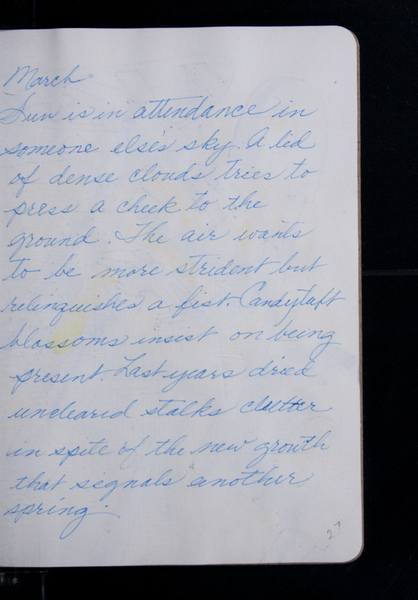 March
Sun is in attendance in
someone else's sky. A lid
of dense clouds tries to
press a cheek to the
ground. The air wants
to be more strident but
relinguishes a fist. Candytuft
blossoms insist on being
present. Last years dried
uncleared stalks clutter
in spite of the new growth
that signals another
spring.
27